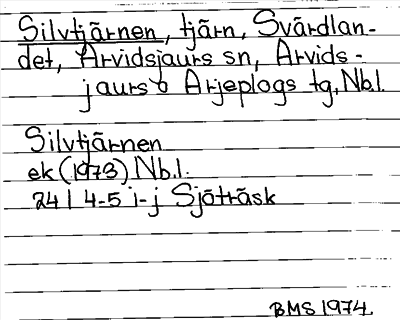 Silvtjärnen, tjärn, Svärdlan-
det, Arvidsjaurs sn, Arvids-
jaurs o Arjeplogs tg, Nb.l.
Silvtjärnen
ek (1973) Nb.l.
24 I 4-5 i-j Sjöträsk
BMS 1974.